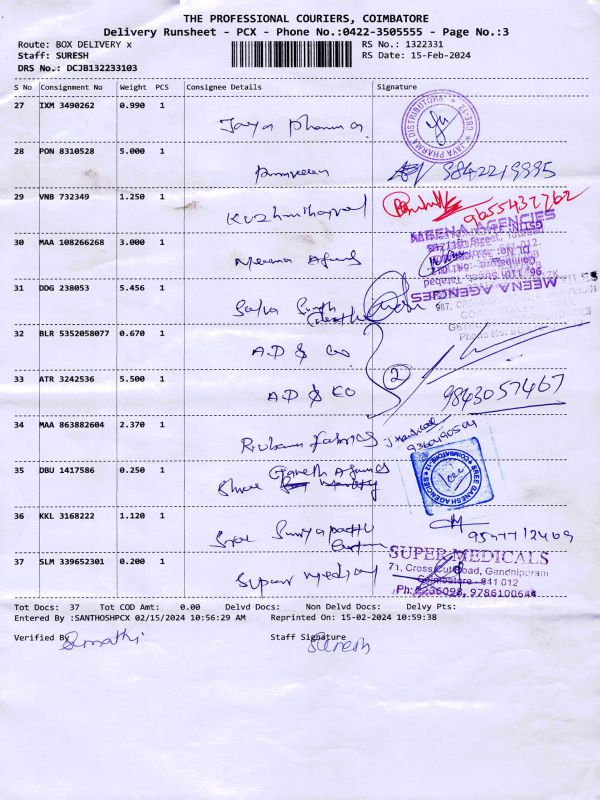 THE PROFESSIONAL COURIERS, COIMBATORE
Delivery Runsheet - PCX - Phone No.:0422-3505555 - Page No.:3
Route: BOX DELIVERY x
RS No.: 1322331
Staff: SURESH
RS Date: 15-Feb-2024
DRS No.: DCJB132233103
S No Consignment No Weight PCS Consignee Details Signature
27 IXM 3490262 0.990 1
Jaya Pharma.
JAYA PHARMA DISTRIBUTORS
CBE-12
28 PON 8310528 5.000 1
9842219995
29 VNB 732349 1.250 1
9655432762
30 MAA 108266268 3.000 1
Meena Agencies
MEENA AGENCIES
MEENA AGENCIES
31 DDG 238053 5.456 1
32 BLR 5352058077 0.670 1
A.D & Co
33 ATR 3242536 5.500 1
A.D & CO
2
9843057467
34 MAA 863882604 2.370 1
Fabrics
9360490504
35 DBU 1417586 0.250 1
Shree Ganesh Agencies
SREE GANESH AGENCIES
COIMBATORE-12
36 KKL 3168222 1.120 1
Sree
37 SLM 339652301 0.200 1
Super Medical
SUPER MEDICALS
71, Cross Cut Road, Gandhipuram
Coimbatore - 641 012
Ph: 4236098, 9786100644
Tot Docs: 37 Tot COD Amt: 0.00 Delvd Docs: Non Delvd Docs: Delvy Pts:
Entered By :SANTHOSHPCX 02/15/2024 10:56:29 AM Reprinted On: 15-02-2024 10:59:38
Verified By
Staff Signature
Sumathi
Suresh